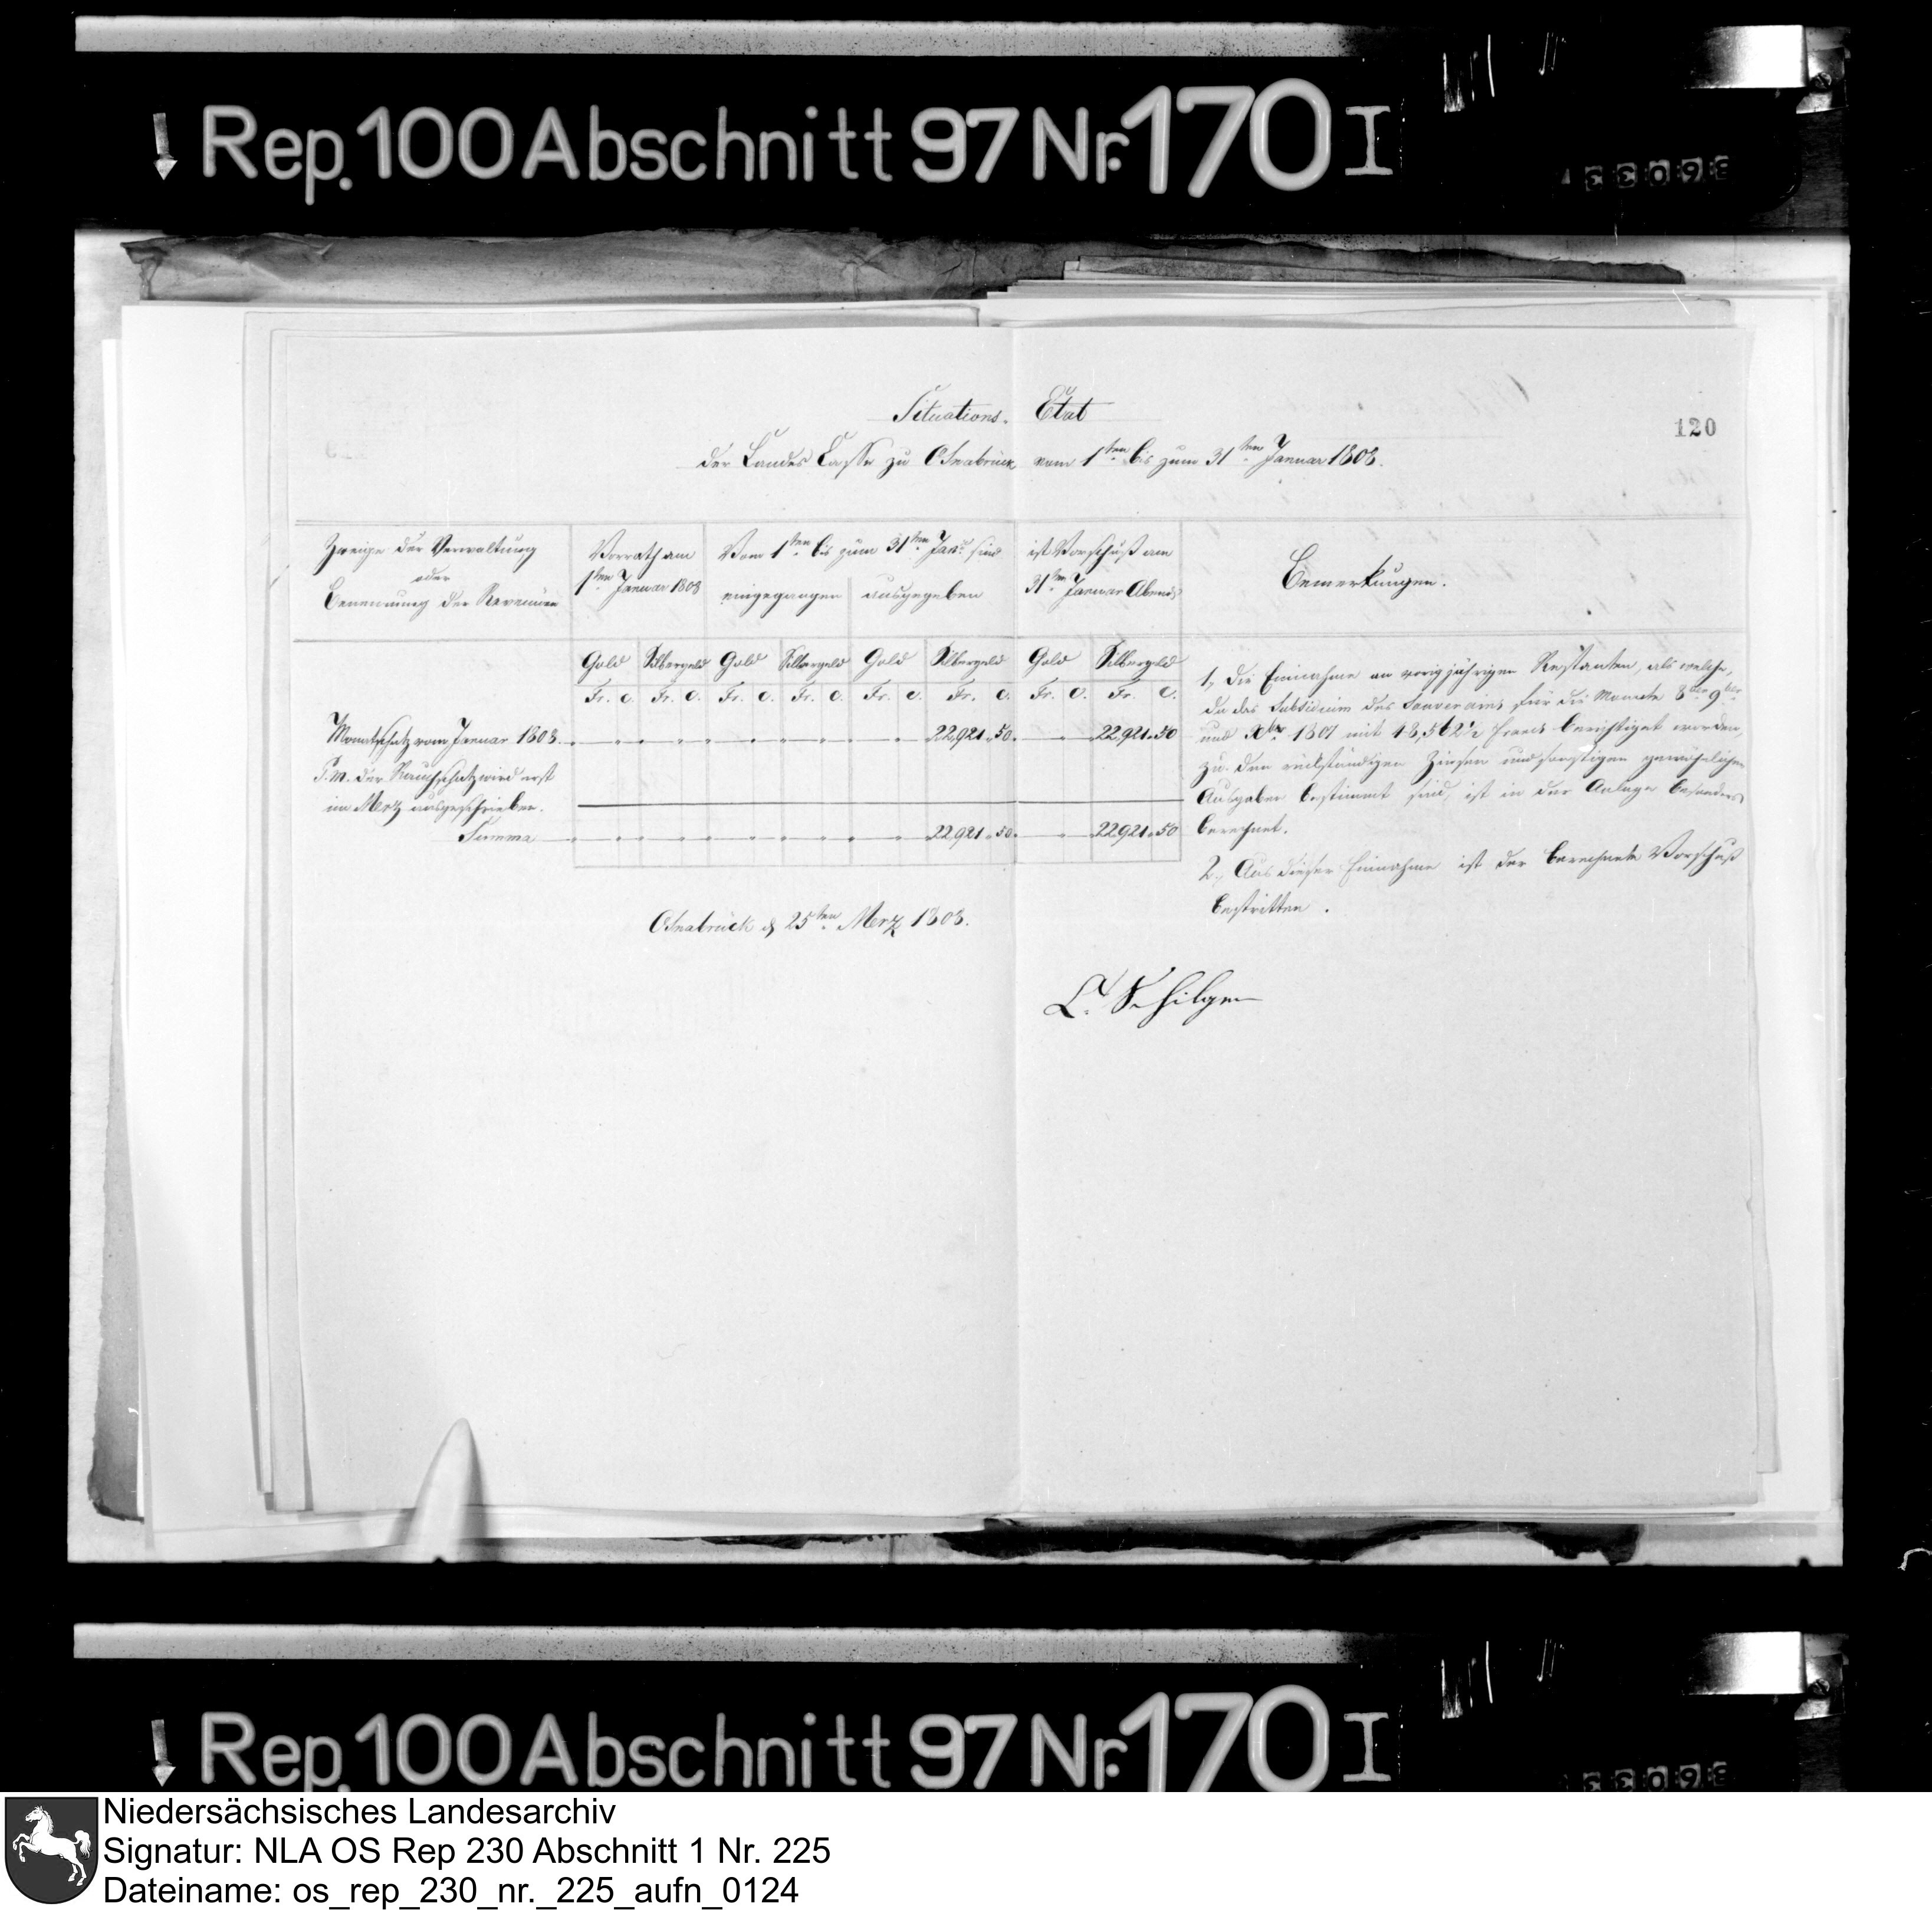 Rep. 100 Abschnitt 97 Nr. 170 I
36033
Situations. Etat
120
der Landes Casse zu Osnabrück vom 1ten bis zum 31ten Januar 1808.
Zweige der Verwaltung
oder
Benennung der Revenüen
Vorrath am
1ten Januar 1808
Vom 1ten bis zum 31ten Janr sind
eingegangen ausgegeben
ist Vorschuß am
31ten Januar Abends
Bemerkungen.
Gold Silbergeld Gold Silbergeld Gold Silbergeld Gold Silbergeld
Fr. C. Fr. C. Fr. C. Fr. C. Fr. C. Fr. C. Fr. C. Fr. C.
Monatschatz vom Januar 1808. 22,921 „ 50. 22,921 „ 50
der Rauchschatz wird erst
im Merz ausgeschrieben.
Summa 22,921 „ 50. 22,921 „ 50
1, Die Einnahme an vorigjährigen Restanten, als welche,
da das Subsidium des Souverains für die Monate 8ber 9ber
und Xber 1807 mit 48,562½ Francs berichtiget worden,
zu den rückständigen Zinsen und sonstigen gewöhnlichen
Ausgaben bestimmt sind, ist in der Anlage besonders
berechnet.
2, Aus dieser Einnahme ist der berechnete Vorschuß
bestritten.
Osnabrück d 25ten Merz 1808.
C. Schilgen
Rep. 100 Abschnitt 97 Nr. 170 I
36033
Niedersächsisches Landesarchiv
Signatur: NLA OS Rep 230 Abschnitt 1 Nr. 225
Dateiname: os_rep_230_nr._225_aufn_0124